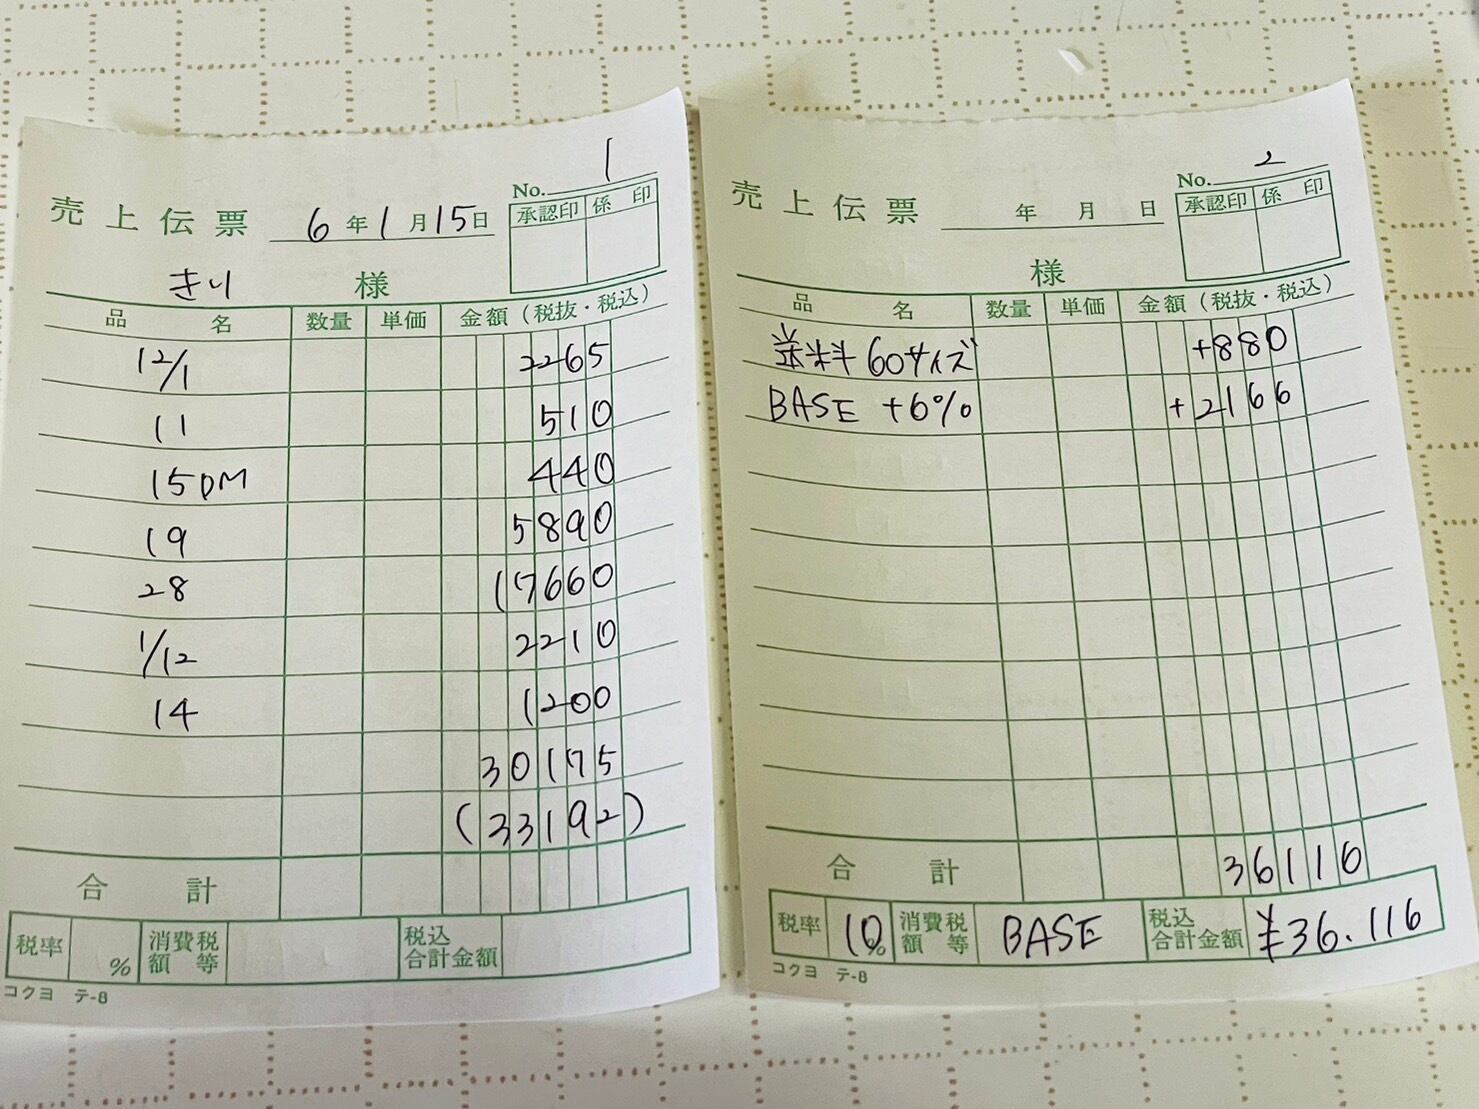 No. 1
売上伝票 6年1月15日
承認印 係印
きり 様
品名 数量 単価 金額(税抜・税込)
12/1 2265
11 510
15DM 440
19 5890
28 17660
1/12 2210
14 1200
30175
(33192)
合計
税率 % 消費税額等 税込合計金額
コクヨ テ-8
No. 2
売上伝票 年 月 日
承認印 係印
様
品名 数量 単価 金額(税抜・税込)
送料 60サイズ +880
BASE +6% +2166
合計 36116
税率 10% 消費税額等 BASE 税込合計金額 ¥36.116
コクヨ テ-8